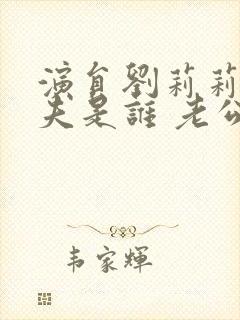 演員劉莉莉
夫是誰 老公
韦家輝